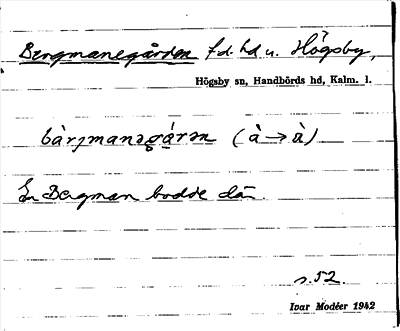 Bergmanegården f.d. hd u. Högsby,
Högsby sn, Handbörds hd, Kalm. l.
bàrjmanəgá̀rən (à→à)
En Bergman bodde där.
s. 52.
Ivar Modéer 1942